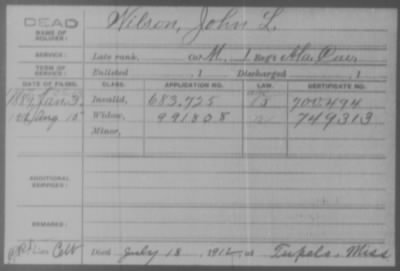 DEAD Wilson, John L.
NAME OF SOLDIER:
SERVICE: Late rank, Co. M, 1 Reg't Ala. Cav.
TERM OF SERVICE: Enlisted , 1 Discharged , 1
DATE OF FILING. CLASS. APPLICATION NO. LAW. CERTIFICATE NO.
1889 Jan. 3 Invalid, 683.725 700.494
Aug 15 Widow, 991808 749313
Minor,
ADDITIONAL SERVICES:
REMARKS:
Died July 18, 1912, at Tupelo, Miss